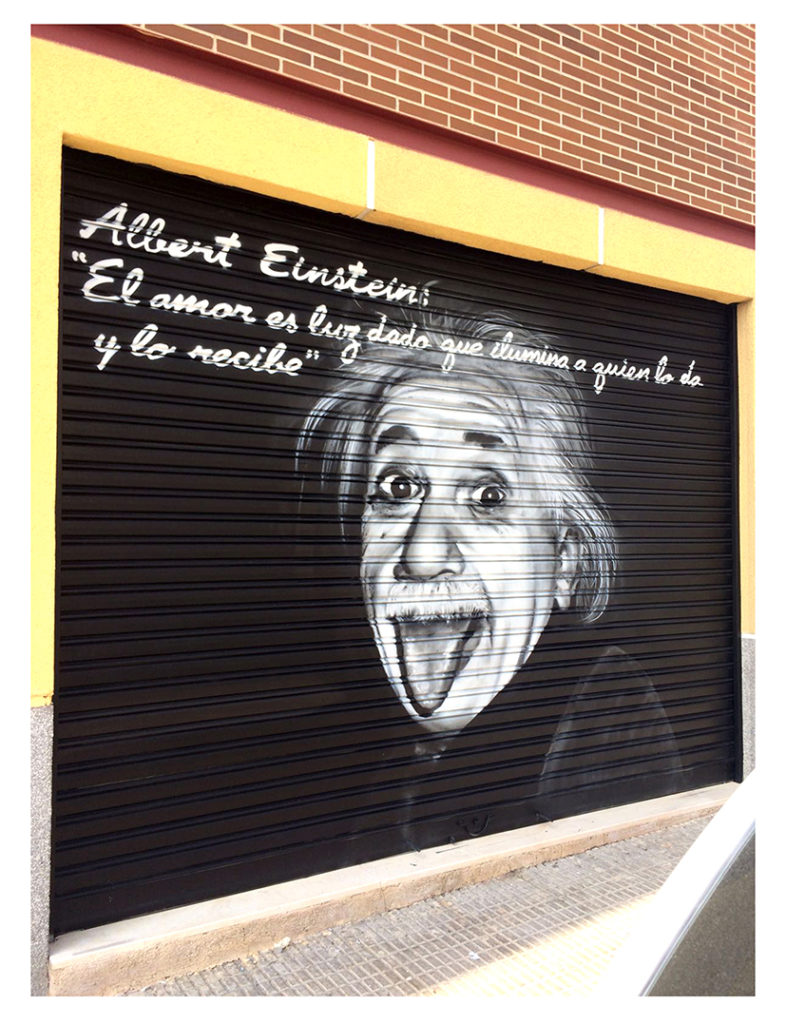 Albert Einstein:
"El amor es luz dado que ilumina a quien lo da
y lo recibe"